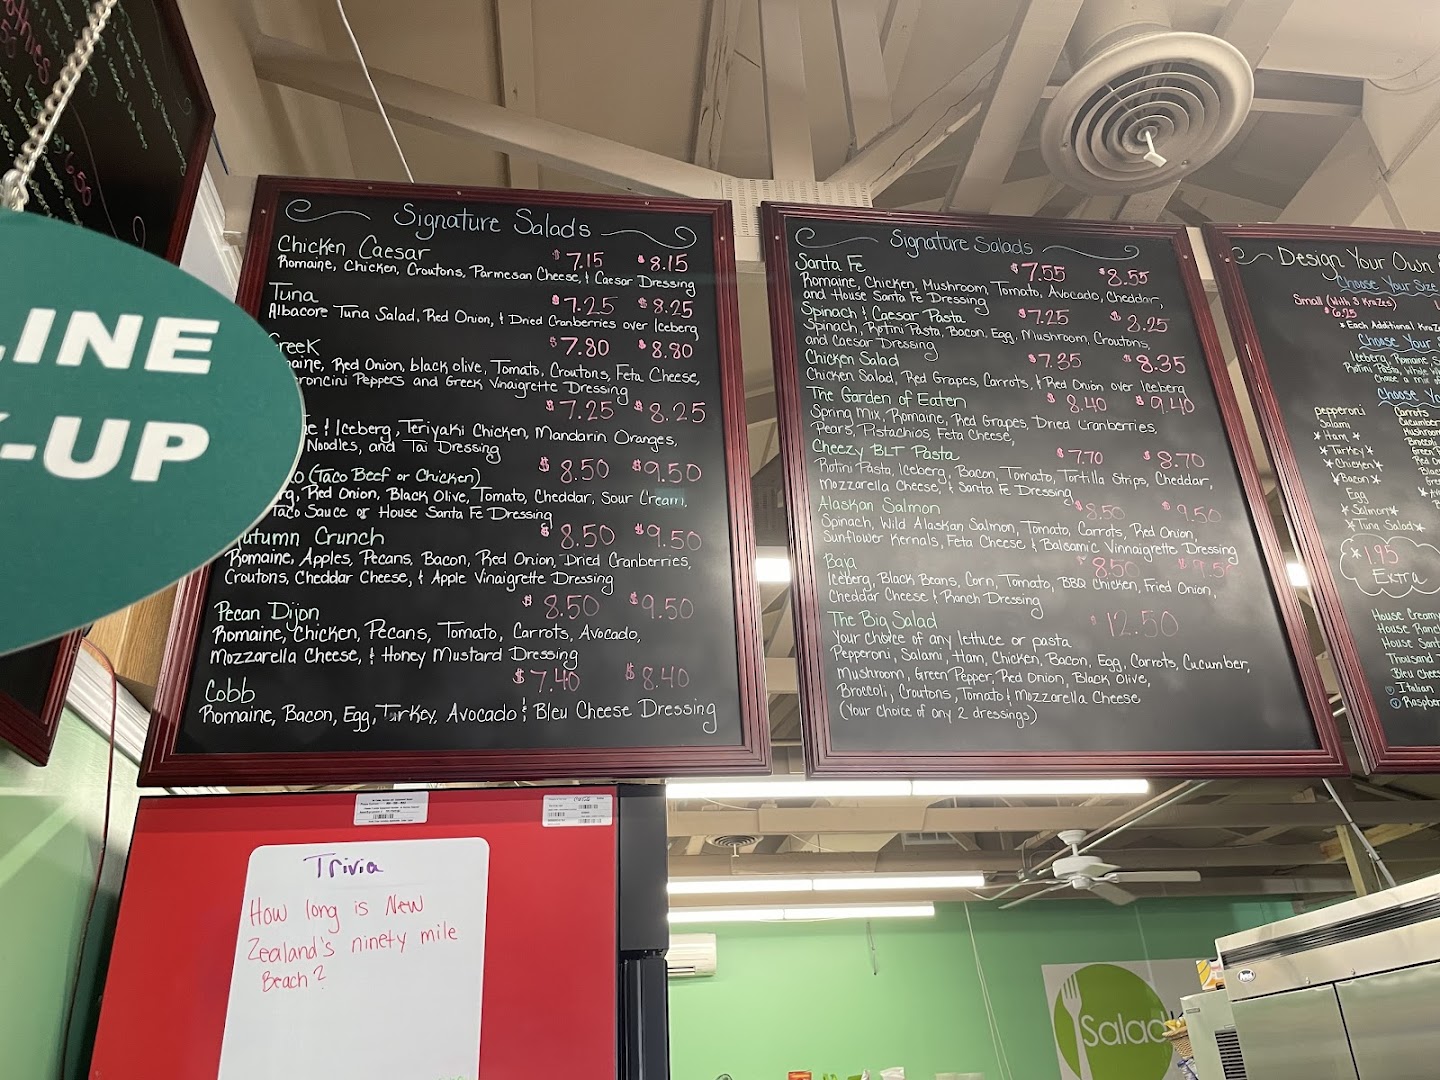 LINE
-UP
Signature Salads
Chicken Caesar $7.15 $8.15
Romaine, Chicken, Croutons, Parmesan Cheese, & Caesar Dressing
Tuna $7.25 $8.25
Albacore Tuna Salad, Red Onion, & Dried Cranberries over Iceberg
Greek $7.80 $8.80
maine, Red Onion, black olive, Tomato, Croutons, Feta Cheese,
eroncini Peppers and Greek Vinaigrette Dressing
$7.25 $8.25
e & Iceberg, Teriyaki Chicken, Mandarin Oranges,
Noodles, and Tai Dressing
o (Taco Beef or Chicken) $8.50 $9.50
rg, Red Onion, Black Olive, Tomato, Cheddar, Sour Cream,
Taco Sauce or House Santa Fe Dressing
utumn Crunch $8.50 $9.50
Romaine, Apples, Pecans, Bacon, Red Onion, Dried Cranberries,
Croutons, Cheddar Cheese, & Apple Vinaigrette Dressing
Pecan Dijon $8.50 $9.50
Romaine, Chicken, Pecans, Tomato, Carrots, Avocado,
Mozzarella Cheese, & Honey Mustard Dressing
Cobb $7.40 $8.40
Romaine, Bacon, Egg, Turkey, Avocado & Bleu Cheese Dressing
Signature Salads
Santa Fe $7.55 $8.55
Romaine, Chicken, Mushroom, Tomato, Avocado, Cheddar,
and House Santa Fe Dressing
Spinach & Caesar Pasta $7.25 $8.25
Spinach, Rotini Pasta, Bacon, Egg, Mushroom, Croutons,
and Caesar Dressing
Chicken Salad $7.35 $8.35
Chicken Salad, Red Grapes, Carrots, & Red Onion over Iceberg
The Garden of Eaten $8.40 $9.40
Spring Mix, Romaine, Red Grapes, Dried Cranberries,
Pears, Pistachios, Feta Cheese,
Cheezy BLT Pasta $7.70 $8.70
Rotini Pasta, Iceberg, Bacon, Tomato, Tortilla Strips, Cheddar,
Mozzarella Cheese, & Santa Fe Dressing
Alaskan Salmon $8.50 $9.50
Spinach, Wild Alaskan Salmon, Tomato, Carrots, Red Onion,
Sunflower Kernals, Feta Cheese & Balsamic Vinnaigrette Dressing
Baja $8.50 $9.50
Iceberg, Black Beans, Corn, Tomato, BBQ Chicken, Fried Onion,
Cheddar Cheese & Ranch Dressing
The Big Salad $12.50
Your choice of any lettuce or pasta
Pepperoni, Salami, Ham, Chicken, Bacon, Egg, Carrots, Cucumber,
Mushroom, Green Pepper, Red Onion, Black Olive,
Broccoli, Croutons, Tomato & Mozzarella Cheese
(Your choice of any 2 dressings)
Design Your Own
Choose Your Size
Small (with 3 KraZes)
$6.25
*Each Additional Kra
Choose Your
Iceberg, Romaine, S
Rotini Pasta, Whole W
Choose a mix of
Choose Yo
pepperoni Carrots
Salami Cucumber
*Ham* Mushroom
*Turkey* Broccoli
*Chicken* Green P
*Bacon* Red On
Egg
*Salmon*
*Tuna Salad*
*1.95
Extra
House Creamy
House Ranch
House Sant
Thousand
Bleu Chees
Italian
Raspber
Trivia
How long is New
Zealand's ninety mile
Beach?
Salad